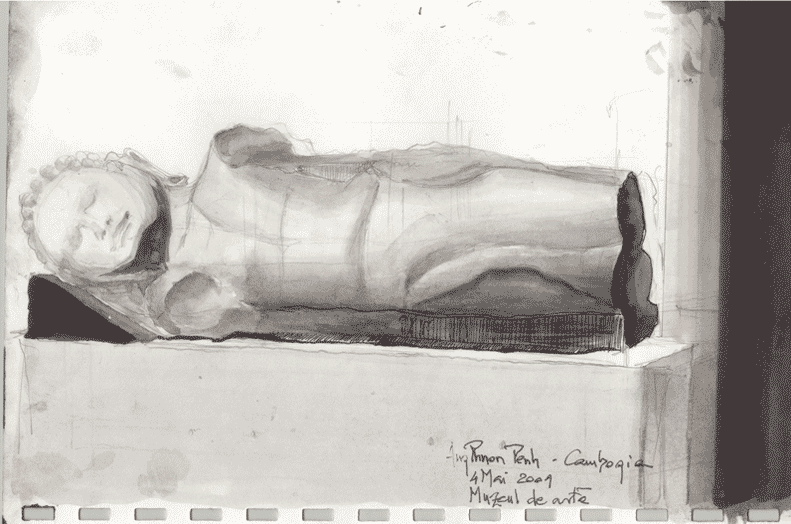 Phnon Penh - Cambogia
4 Mai 2009
Muzeul de arte